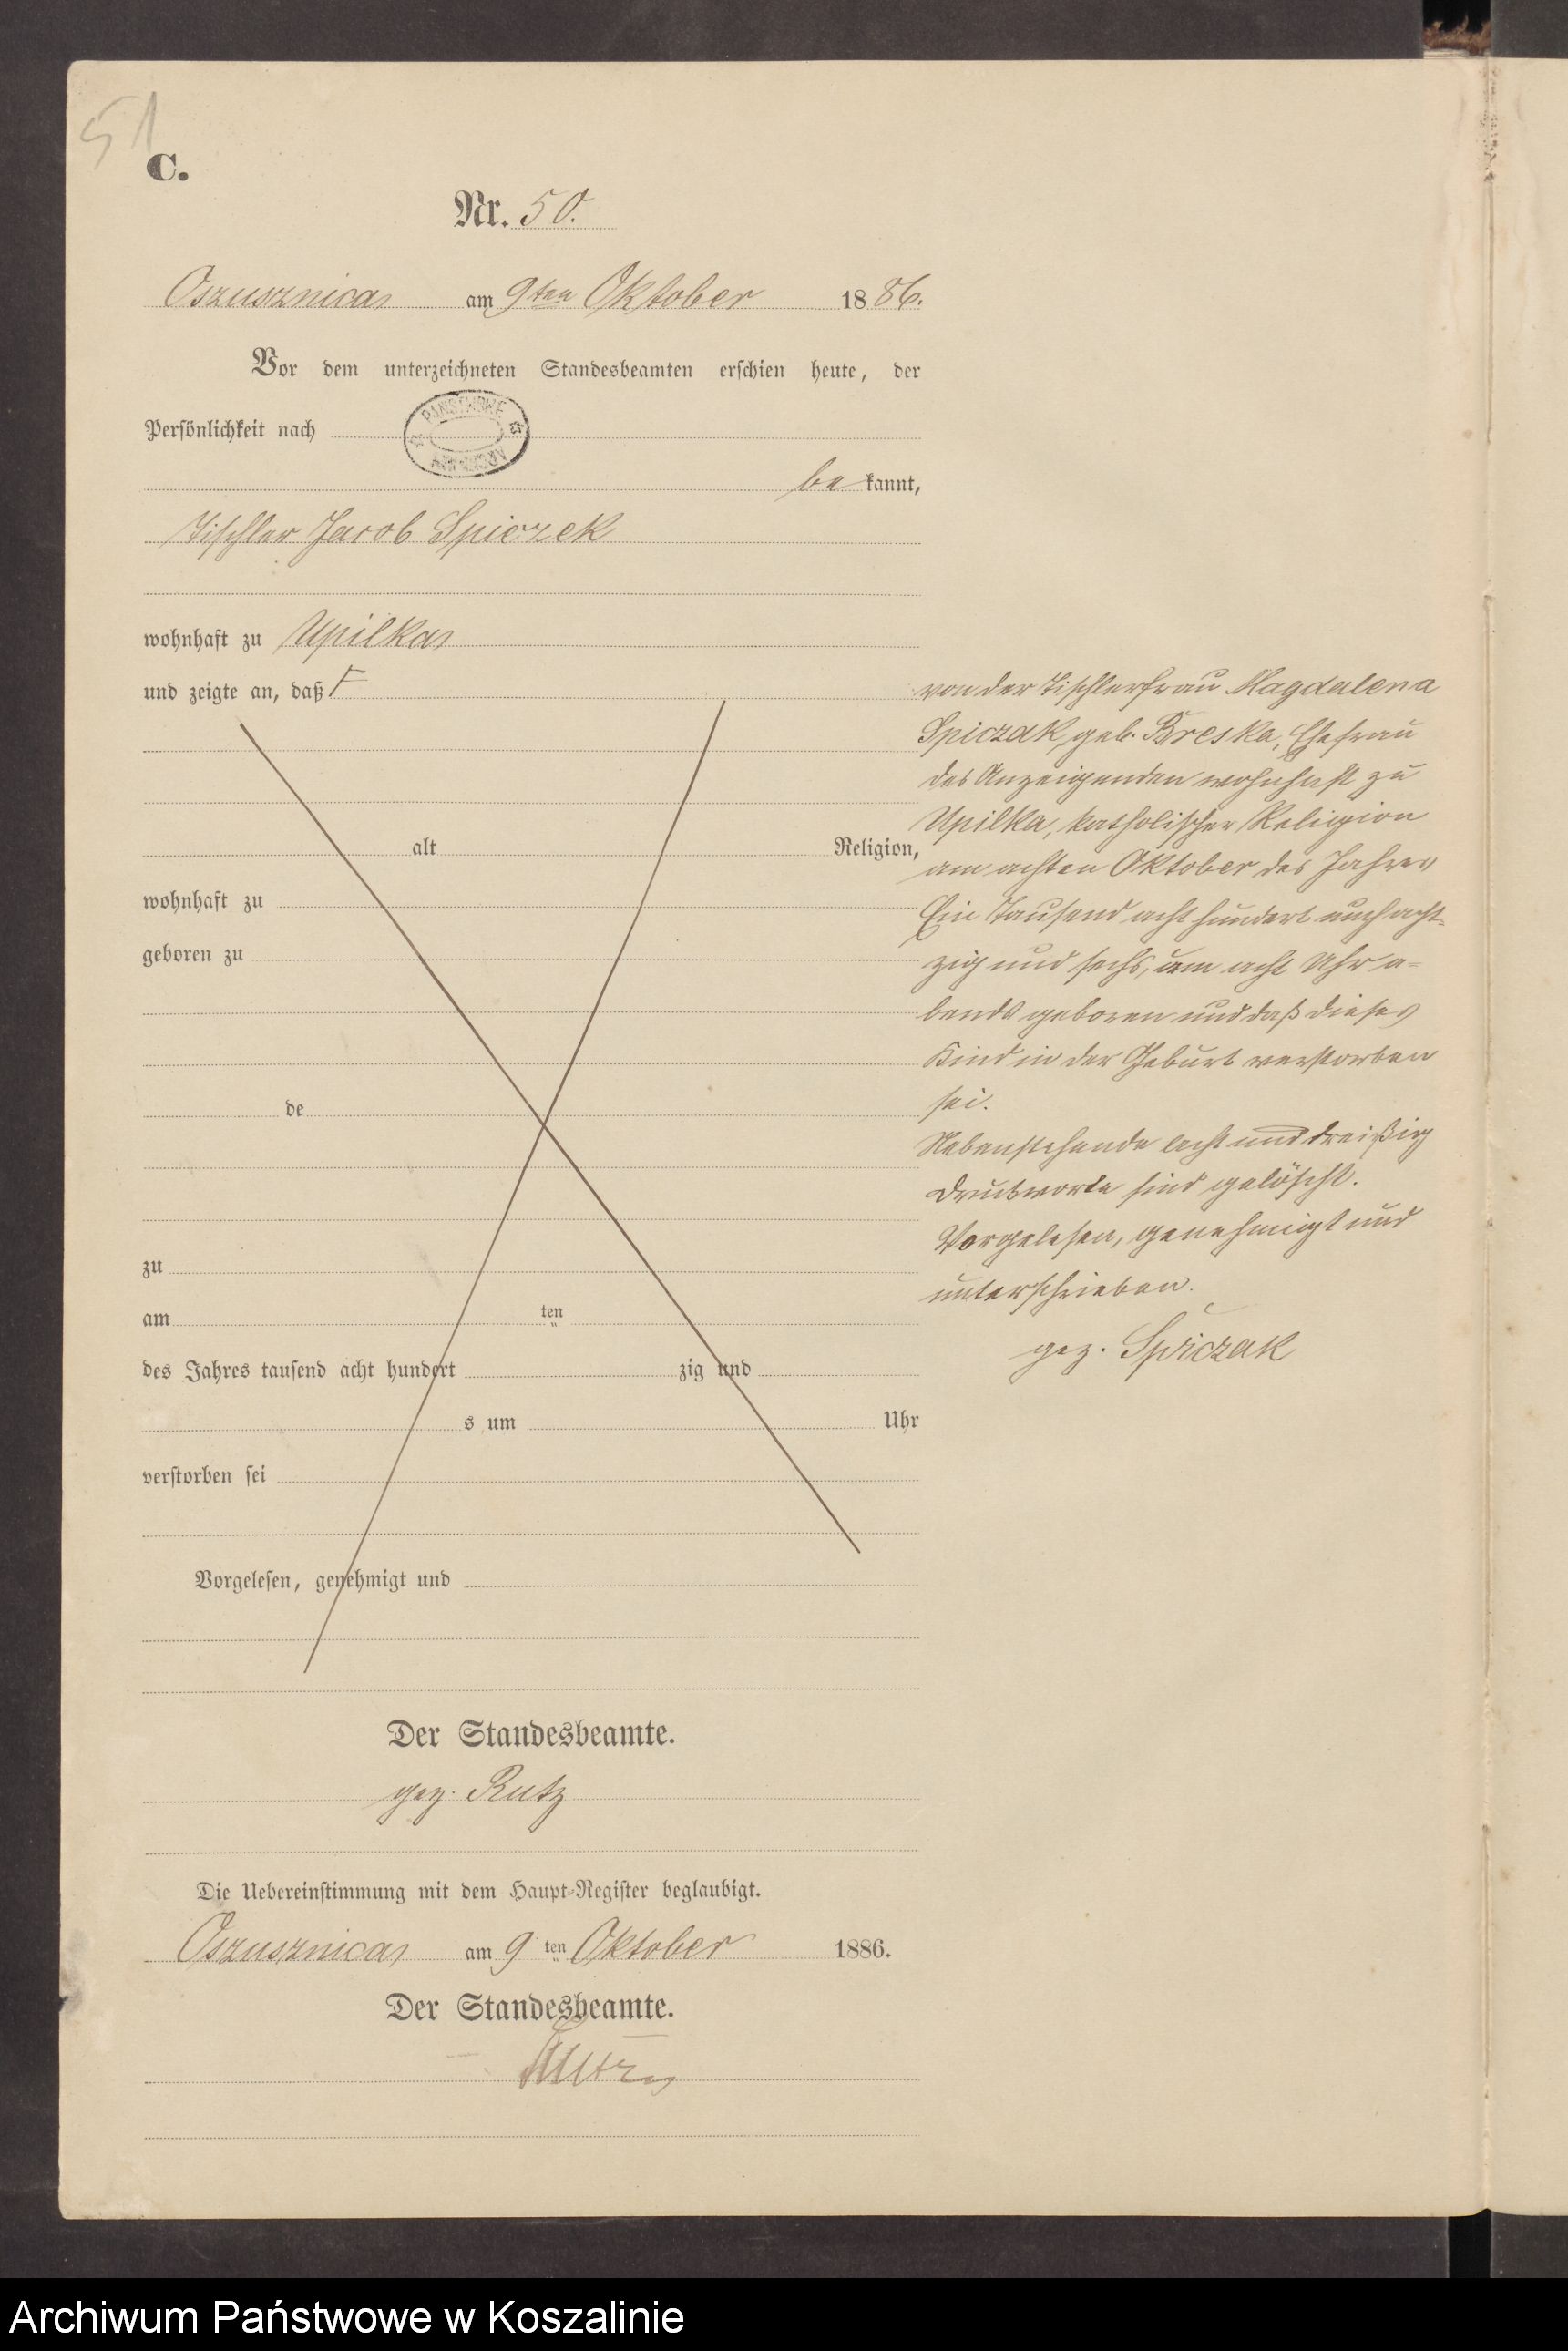 51
C.
Nr. 50.
Oszusznica am 9ten Oktober 1886.
Vor dem unterzeichneten Standesbeamten erschien heute, der
Persönlichkeit nach
PAŃSTWOWE
ARCHIWUM
be kannt,
Tischler Jacob Spiczek
wohnhaft zu Upilka
und zeigte an, daß F
alt Religion,
wohnhaft zu
geboren zu
de
zu
am ten
des Jahres tausend acht hundert zig und
s um Uhr
verstorben sei
Vorgelesen, genehmigt und
von der Tischlerfrau Magdalena
Spiczak, geb. Breska, Ehefrau
des Anzeigenden wohnhaft zu
Upilka, katholischer Religion
am achten Oktober des Jahres
Ein Tausend acht hundert acht-
zig und sechs, um acht Uhr a-
bends geboren und daß dieses
Kind in der Geburt verstorben
sei.
Nebenstehende acht und dreißig
Druckworte sind gelöscht.
Vorgelesen, genehmigt und
unterschrieben.
gez. Spiczak
Der Standesbeamte.
gez. Rutz
Die Uebereinstimmung mit dem Haupt-Register beglaubigt.
Oszusznica am 9 ten Oktober 1886.
Der Standesbeamte.
Rutz
Archiwum Państwowe w Koszalinie